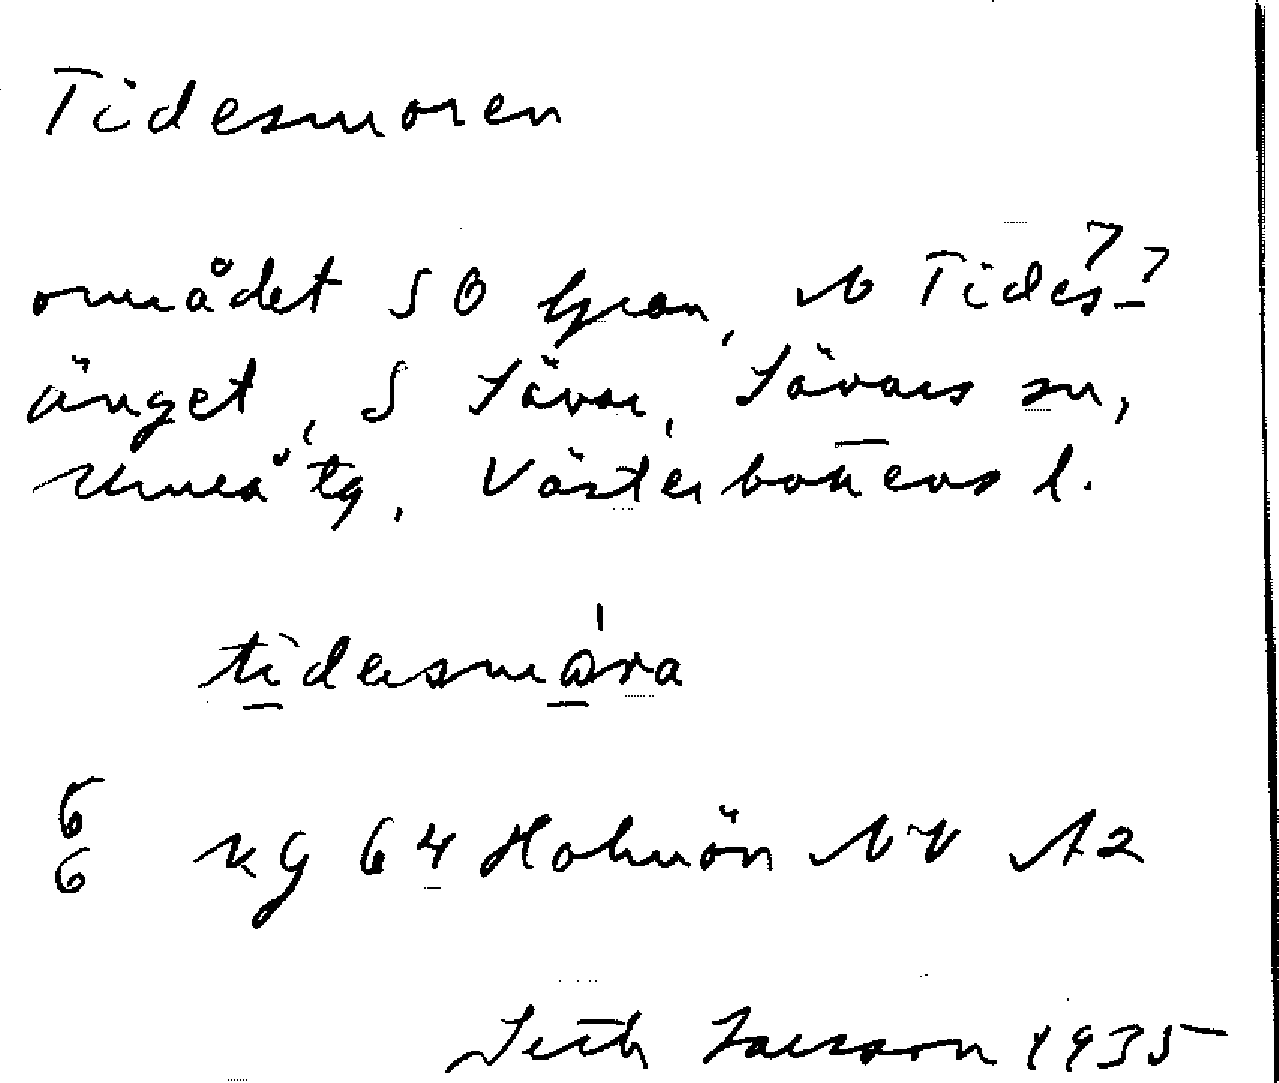 Tidesmoren
området SO Gran, N Tides-
änget, S Sävar, Sävars sn,
Umeå tg, Västerbottens l.
tidesmåra
6
6 kg 64 Holmön NV A2
Seth Larsson 1935